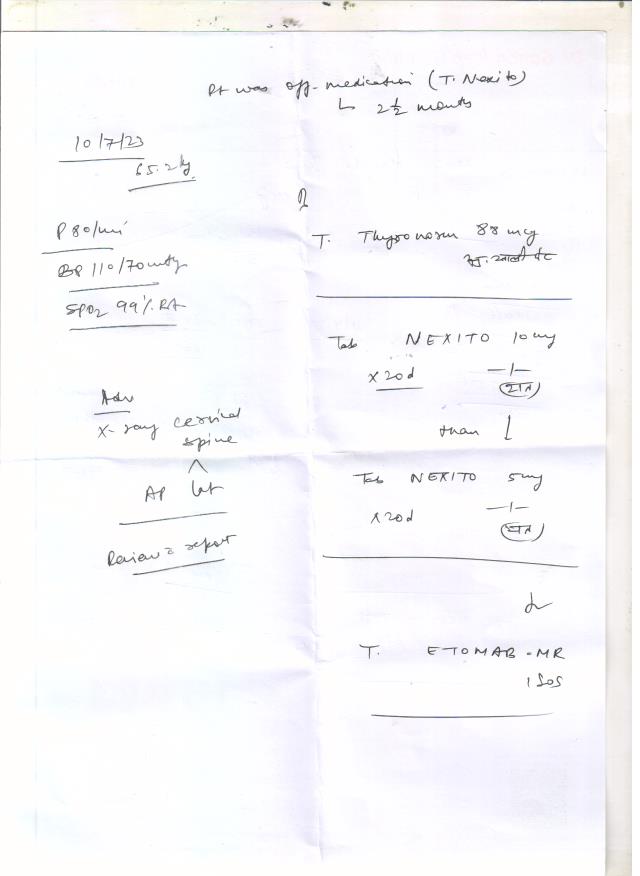 Pt was off-medication (T. Nexito)
↳ 2 1/2 months
10/7/23
65.2 kg
P 80/mi
BP 110/70 mmHg
SPO2 99% RA
Adv
X-ray cervical
spine
AP Lat
Review c report
T. Thyronorm 88 mcg
सु. खाली पेट
Tab NEXITO 10 mg
x 20d —1—
रात
then ↓
Tab NEXITO 5 mg
x 20d —1—
रात
T. ETOMAB-MR
1 SOS